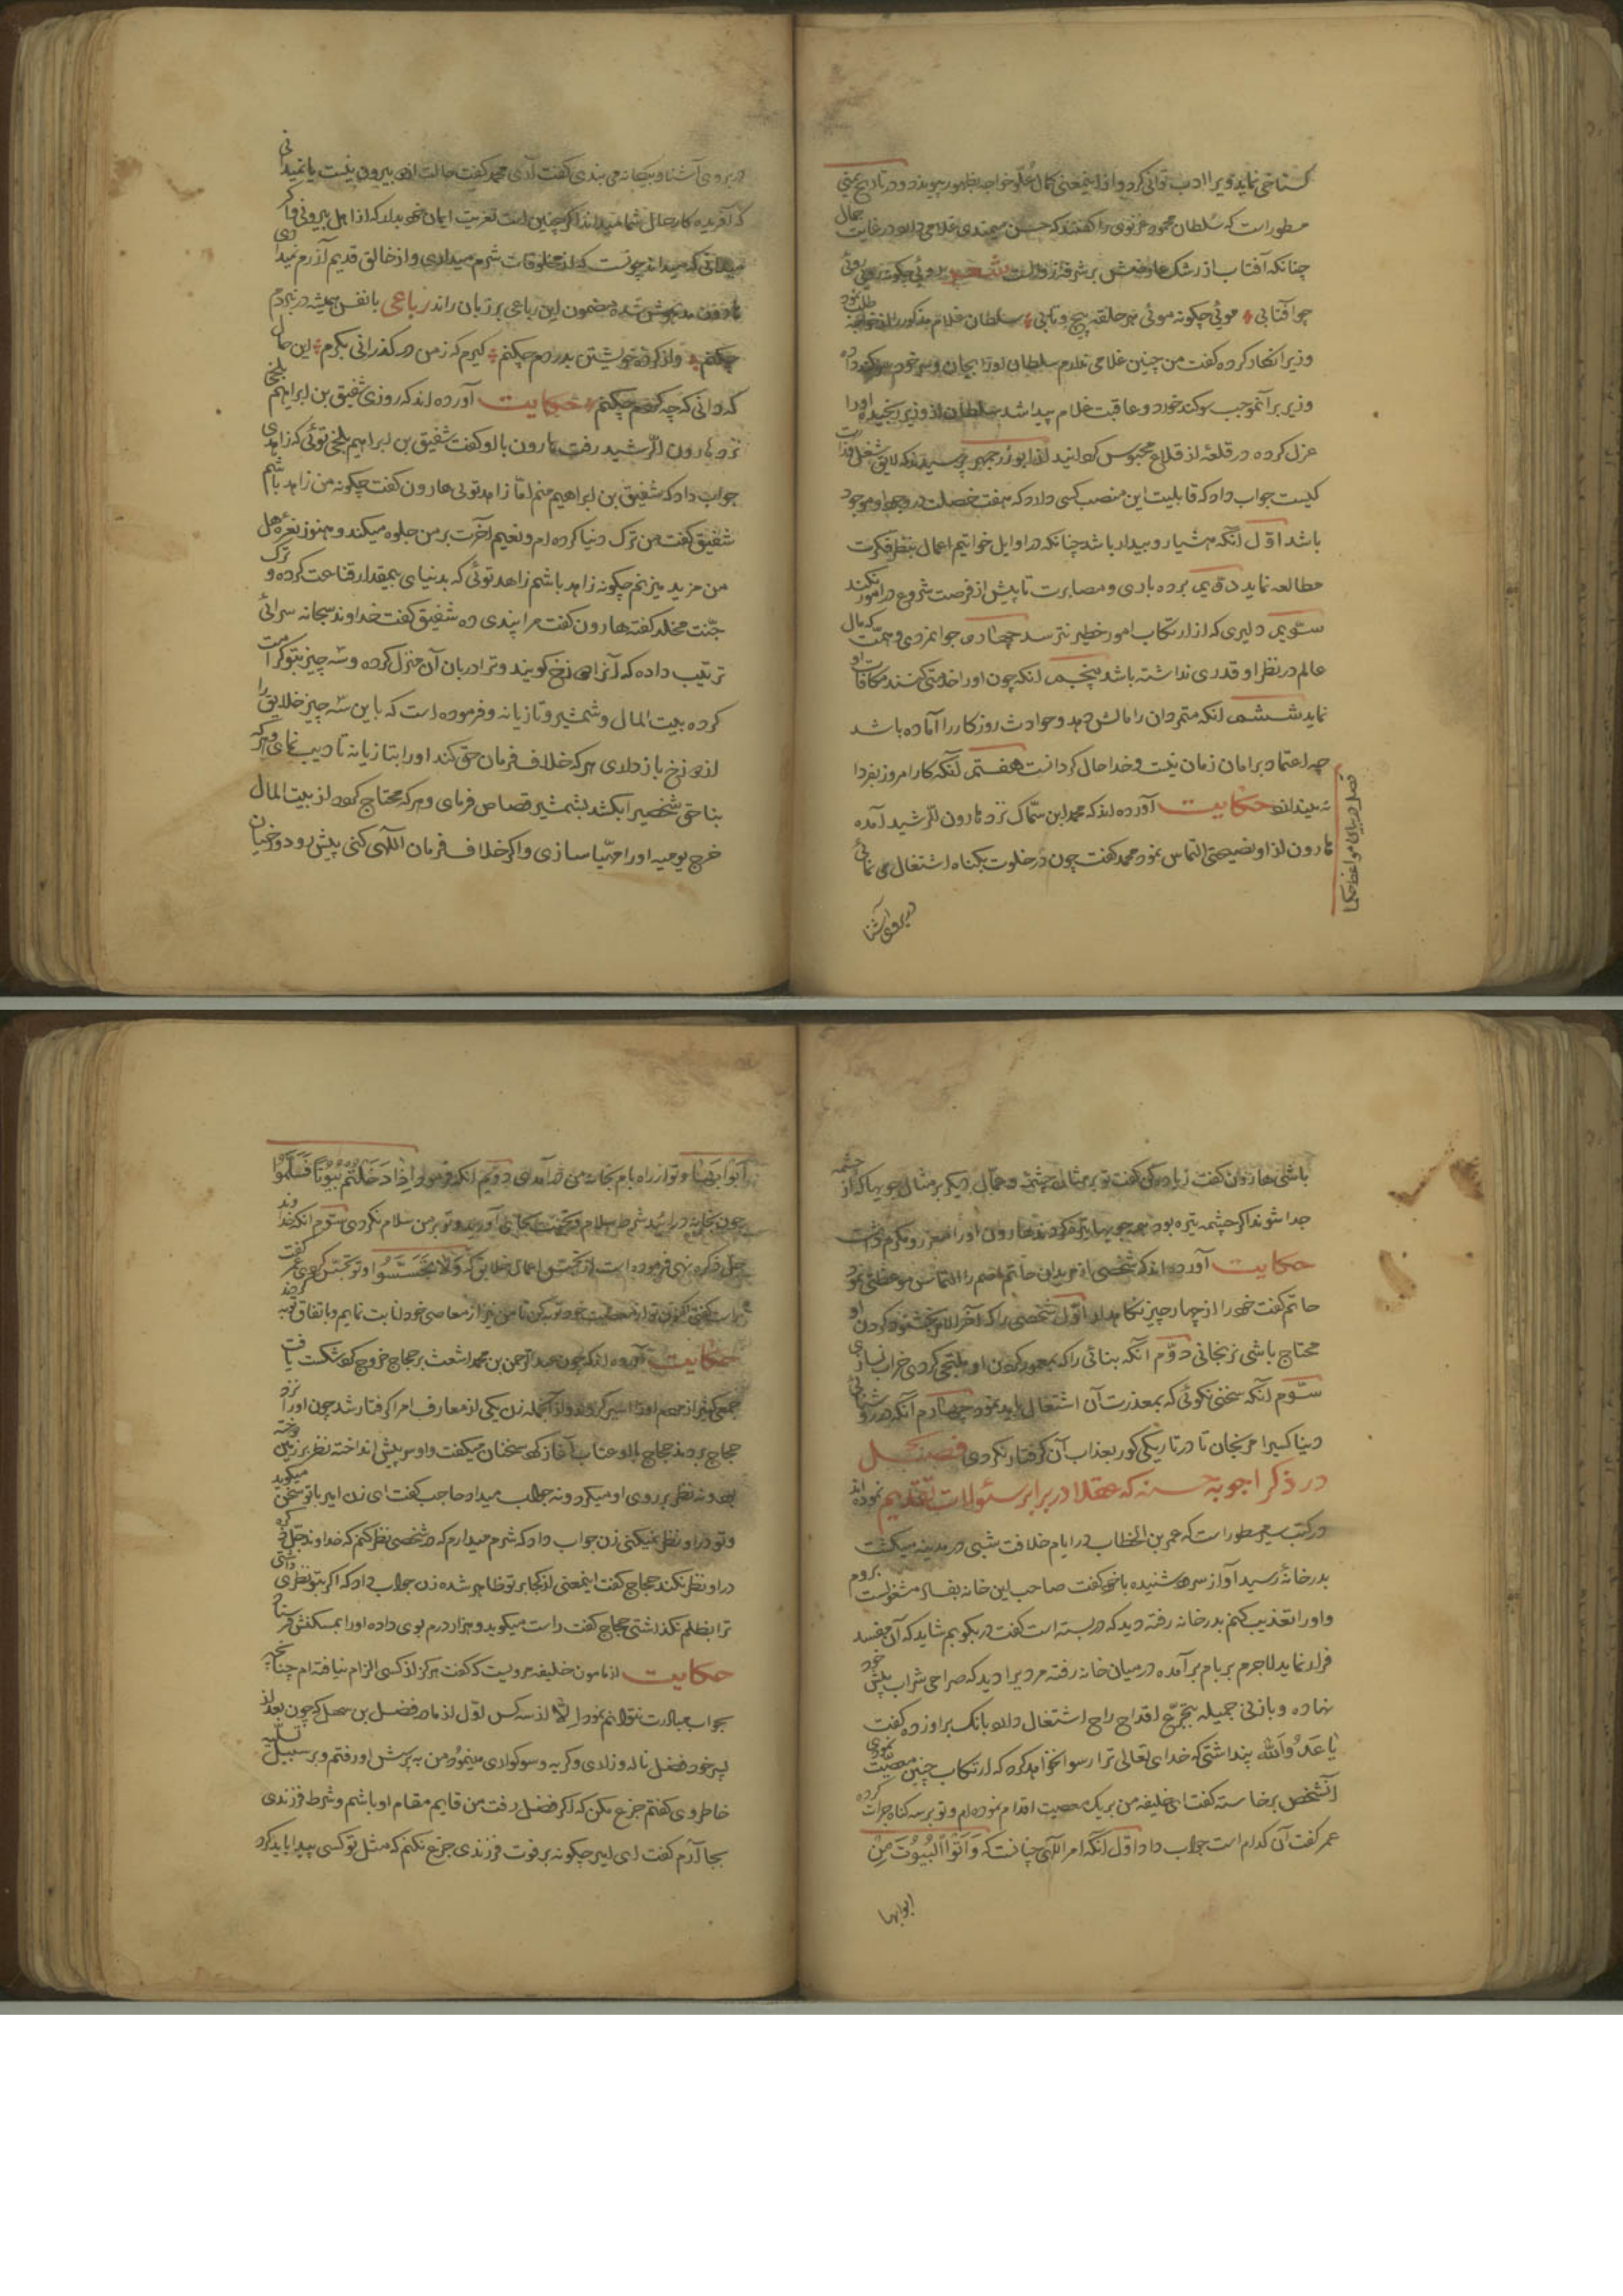 گستاخی نماید ویرا ادب توانی کرد و از اینمعنی کمال علو خواجه بظهور پیوندد و در تاریخ یمینی
مسطور است که سلطان محمود غزنوی را گفتند که حسن میمندی غلامی دارد در غایت جمال
چنانکه آفتاب از رشک عارضش شعر روئی چگونه روئی روئی
چو آفتابی موئی چگونه موئی هر حلقه پیچ و تابی سلطان غلام مذکور را از خواجه طلب نمود
وزیر انکار کرده گفت من چنین غلامی ندارم سلطان او را بجان و سر خود سوگند داده
وزیر بر آنموجب سوگند خورد و عاقبت غلام پیدا شد سلطان از وزیر رنجیده او را
عزل کرده در قلعه از قلاع محبوس گردانید از ابوزرجمهر پرسیدند که لایق شغل وزارت
کیست جواب داد که قابلیت این منصب کسی دارد که هفت خصلت در وی موجود
باشد اول آنکه هشیار و بیدار باشد چنانکه در اوایل خواتیم اعمال بنظر فکرت
مطالعه نماید دویم بردباری و مصابرت تا پیش از فرصت شروع در امور نکند
سئویم دلیری که از ارتکاب امور خطیر نترسد چهارم جوانمردی و همت که مال
عالم در نظر او قدری نداشته باشد پنجم آنکه چون او را خدمتی کنند مکافات او
نماید ششم آنکه متمردان را مالش دهد و حوادث روزکار را آماده باشد
چه اعتماد بر امان زمان نیست هفتم آنکه کار امروز بفردا
نیندازد حکایت آورده اند که محمد ابن سماک نزد هارون الرشید آمده
هارون از او نصیحتی التماس نمود محمد گفت چون در خلوت بگناه اشتغال می نمائی
فصل در بیان مواعظ حکما
در بروی آشنا
در بروی آشنا و بیگانه می بندی گفت آری محمد گفت حالت از دو بیرون نیست یا نمیدانی
که آفریدکار حال شما میداند اگر چنین است تعزیت ایمان خود بدار که از اهل بیرونی و اگر
میدانی که میداند چونست که از مخلوقات شرم میداری و از خالق قدیم آزرم نمیداری
هارون مدهوش شده مضمون این رباعی بر زبان راند رباعی با نفس همیشه در نبردم
چکنم واز کرده خویشتن بدردم چکنم گیرم که زمن در گذرانی بکرم این حال
که دانی که چه کردم چکنم حکایت آورده اند که روزی شقیق بن ابراهیم بلخی
نزد هارون الرشید رفت هارون با او گفت شقیق بن ابراهیم بلخی توئی که زاهدی
جواب داد که شقیق بن ابراهیم منم اما زاهد توئی هارون گفت چگونه من زاهد باشم
شقیق گفت من ترک دنیا کرده ام و نعیم آخرت بر من جلوه میکند و هنوز نعره هل
من مزید میزنم چگونه زاهد باشم زاهد توئی که بدنیای بیمقدار قناعت کرده و ترک
جنت مخلد گفته هارون گفت مرا پندی ده شقیق گفت خداوند سبحانه سرائی
ترتیب داده که آنرا دوزخ گویند و ترا دربان آن منزل کرده و سه چیز بتو کرامت
کرده بیت المال و شمشیر و تازیانه و فرموده است که باین سه چیز خلایق را
از دوزخ باز داری هر که خلاف فرمان حق کند او را بتازیانه تادیب نمای و هر که
بناحق شخصیرا بکشد بشمشیر قصاص فرمای و هر که محتاج گردد از بیت المال
خرج یومیه او را مهیا سازی و اگر خلاف فرمان اللهی کنی پیش رو دوزخیان
باشی هارون گفت زیاده کن گفت تو بر مثال چشمه و عمال دیگر بر مثال جویها که از چشمه
جدا شوند اگر چشمه تیره بود همه جویها تیره گردند هارون او را معزز و مکرم داشت
حکایت آورده اند که شخصی از مریدان حاتم اصم را التماس موعظتی نمود
حاتم گفت خود را از چهار چیز نگاه دار اول شخصی را که آخر الامر بخشنود کردن او
محتاج باشی نرنجانی دوم آنکه بنائی را که بمعمور کردن او ملتجی گردی خراب نسازی
سئوم آنکه سخنی نگوئی که بمعذرت آن اشتغال باید نمود چهارم آنکه در روشنائی
دنیا کسیرا مرنجان تا در تاریکی گور بعذاب آن گرفتار نگردی فصل
در ذکر اجوبه حسنه که عقلا در برابر سئولات تقدیم نموده اند
در کتب سیر مسطور است که عمر بن الخطاب در ایام خلافت شبی در مدینه میگشت
بدر خانه رسید آواز سرود شنیده با خود گفت صاحب این خانه بفساد مشغولست بروم
و او را تعذیب کنم بدر خانه رفته دید که در بسته است گفت در بگویم شاید که آن مفسد
فرار نماید لاجرم بر بام بر آمده در میان خانه رفته مردیرا دید که صراحی شراب پیش خود
نهاده و با زنی جمیله بتجرع اقداح راح اشتغال دارد بانگ بر او زده گفت
یا عدو الله پنداشتی که خدای تعالی ترا رسوا نخواهد کرد که ارتکاب چنین معصیت نمودی
آنشخص برخاسته گفت ای خلیفه من بر یک معصیت اقدام نموده ام و تو بر سه گناه جرات کرده
عمر گفت آن کدام است جواب داد اول آنکه امر اللهی چنانست که وَاَتُوا الْبُیُوتَ مِنْ
ابوابها
اَبْوَابِهَا و تو از راه بام بخانه من در آمدی دویم آنکه فرمود وَاِذَا دَخَلْتُمْ بُیُوتًا فَسَلِّمُوا
چون بخانه در آئید شرط سلام و تحیت بجای آورید و تو بر من سلام نکردی سئوم آنکه خداوند
جل ذکره نهی فرموده است از تجسس اعمال خلایق که وَلَا تَجَسَّسُوا و تو تجسس کردی عمر گفت
راست گفتی اکنون تو از معصیت خود توبه کن تا من نیز از معاصی خود انابت نمایم و باتفاق توبه کردند
حکایت آورده اند که چون عبد الرحمن بن محمد اشعث بر حجاج خروج کرد شکست یافت
جمعی کثیر از حشم او را اسیر کردند و از آنجمله زن یکی از معارف امرا گرفتار شد چون او را نزد
حجاج بردند حجاج با او عتاب آغاز کرده سخنان میگفت و او سر پیش انداخته نظر بر زمین دوخته
بود و نه نظر بر روی او میکرد و نه جواب میداد حاجب گفت ای زن امیر با تو سخن میگوید
و تو در او نظر نمیکنی زن جواب داد که شرم میدارم که در شخصی نظر کنم که خداوند جل ذکره
در او نظر نکند حجاج گفت اینمعنی از کجا بر تو ظاهر شده زن جواب داد که اگر بتو نظری داشتی
ترا بظلم نگذاشتی حجاج گفت راست میگوید و هزار درم بوی داده او را بمسکنش فرستاد
حکایت از مامون خلیفه مرویست که گفت هرگز از کسی الزام نیافته ام چنانچه
بجواب مبادرت نتوانم نمود الا از سه کس اول از مادر فضل بن سهل که چون بعد از
پسر خود فضل ناله و زاری و گریه و سوکواری مینمود من به پرسش او رفتم و بر سبیل تسلیه
خاطر وی گفتم جزع مکن که اگر فضل رفت من قایم مقام او باشم و شرط فرزندی
بجا آرم گفت ای امیر چگونه بر فوت فرزندی جزع نکنم که مثل تو کسی پیدا باید کرد